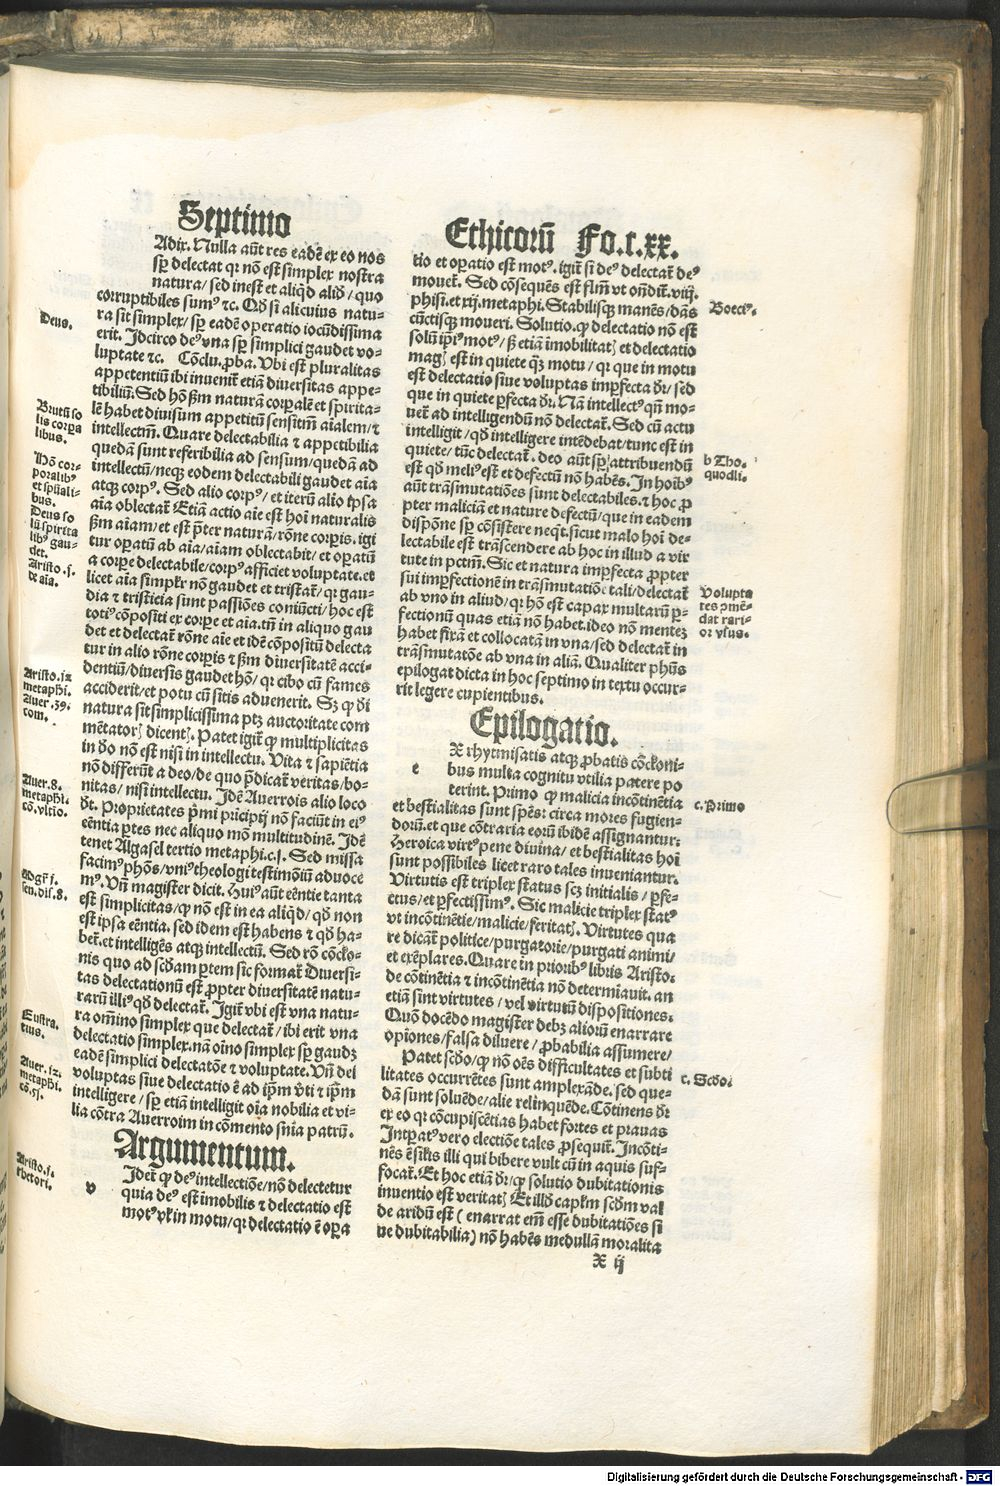 Septimo
Adix. Nulla aūt res eadē ex eo nos
sꝑ delectat qꝛ nō est simplex nostra
natura/ sed inest et aliqḋ aliḋ/ quo
corruptibiles sumꝰ ⁊c. Qḋ si alicuius natu-
ra sit simplex/ sꝑ eadē operatio iocūdissima
erit. Idcirco deꝰ vna sꝑ simplici gaudet vo-
luptate ⁊c. Cōclu. ꝓba. Vbi est pluralitas
appetentiū ibi inuenit̄ etiā diuersitas appe-
tibiliū. Sed hō ßm naturā corꝑalē et spirita-
lē habet diuisum appetitū sensitm̄ aīalem/ ⁊
intellectm̄. Quare delectabilia ⁊ appetibilia
quedā sunt referibilia ad sensum/ quedā ad
intellectū/ neqꝫ eodem delectabili gaudet aīa
atqꝫ corpꝰ. Sed alio corpꝰ/ et iterū alio ipsa
aīa oblectat̄ Etiā actio aīe est hoī naturalis
ßm aīam/ et est p̄ter naturā/ rōne corꝑis. igi
tur oꝑatū ab aīa/ aīam oblectabit/ et oꝑatū
a corpe delectabile/ corpꝰ afficiet voluptate. et
licet aīa simplr nō gaudet et tristat̄/ qꝛ gau-
dia ⁊ tristicia sunt passiōes coniūcti/ hoc est
totiꝰ cōpositi ex corꝑe et aīa. tn̄ in aliquo gau
det et delectat̄ rōne aīe et idē cōpositū delecta
tur in alio rōne corꝑis ⁊ ßm diuersitatē acci-
dentiū/ diuersis gaudet hō/ qꝛ cibo cū fames
acciderit/ et potu cū sitis aduenerit. Sꝫ ꝙ di
natura sit simplicissima ptꝫ auctoritate com
mētatorꝭ dicentꝭ. Patet igit̄ ꝙ multiplicitas
in ḋo nō est nisi in intellectu. Vita ⁊ sapiētia
nō differūt a deo/ de quo p̄dicat̄ veritas/ bo-
nitas/ nisi intellectu. Idē Auerrois alio loco
ḋt. Proprietates p̄mi pricipij nō faciūt in eiꝰ
eēntia ꝑtes nec aliquo mō multitudinē. Idē
tenet Algasel tertio metaphi. c. j. Sed missa
facimꝰ phōs/ vniꝰ theologi testimōiū aduoce
mꝰ. Vn̄ magister dicit. Huiꝰ aūt eēntie tanta
est simplicitas/ ꝙ nō est in ea aliqḋ/ qḋ non
est ipsa eēntia. sed idem est habens ⁊ qḋ ha-
bet̄. et intelligēs atqꝫ intellectū. Sed rō cōclo-
nis quo ad scḋam ꝑtem sic format̄ Diuersi-
tas delectationū est ꝓpter diuersitatē natu-
rarū illiꝰ qḋ delectat̄. Igit̄ vbi est vna natu-
ra om̄ino simplex que delectat̄/ ibi erit vna
delectatio simplex. nā oīno simplex sꝑ gaudꝫ
eadē simplici delectatōe ⁊ voluptate. Vn̄ dei
voluptas siue delectatio ē ad ip̄m vti ⁊ ip̄m
intelligere/ sꝑ etiā intelligit oīa nobilia et vi-
lia cōtra Auerroim in cōmento snīa patrū.
Argumentum.
v Idet̄ ꝙ deꝰ intellectiōe/ nō delectetur
quia deꝰ est imobilis ⁊ delectatio est
motꝰ vl̄ in motu/ qꝛ delectatio ē oꝑa
Deus.
Brutū so
lis corꝑa
libus.
Hō cor-
poralibꝰ
et spūali-
bus.
Deus so
lū spirita
libꝰ gau-
det.
Aristo. j.
de aīa.
Aristo. iz
metaphi.
Auer. 39.
com.
Auer. 8.
metaphi.
cō. vltio.
Mḡr j.
sen. dis. 8.
Eustra-
tius.
Auer. iz.
metaphi.
cō. 51.
Aristo. j.
rhetori.
Ethicoꝛū Fo. I. xx.
tio et oꝑatio est motꝰ. igit̄ si deꝰ delectat̄ deꝰ
mouet̄. Sed cōsequēs est flm̄ vt on̄dit̄. viij.
phisi. et xij. metaphi. Stabilisqꝫ manēs/ dās
cūctisqꝫ moueri. Solutio. ꝙ delectatio nō est
solū ip̄iꝰ motꝰ/ ß etiā imobilitatꝭ et delectatio
magꝭ est in quiete qꝫ motu/ qꝛ que in motu
est delectatio siue voluptas imꝑfecta ḋr/ sed
que in quiete ꝑfecta ḋr. Nā intellectꝰ qn̄ mo-
uet̄ ad intelligendū nō delectat̄. Sed cū actu
intelligit/ qḋ intelligere intēdebat/ tunc est in
quiete/ tūc delectat̄. deo aūt sꝑ attribuendū
est qḋ meliꝰ est et defectū nō habēs. In hoībꝰ
aūt trāsmutatiōes sunt delectabiles. ⁊ hoc ꝓ
pter maliciā et nature defectū/ que in eadem
dispōne sꝑ cōsistere neqt̄. sicut malo hoī de-
lectabile est trāscendere ab hoc in illud a vir
tute in pctm̄. Sic et natura imꝑfecta ꝓpter
sui imꝑfectionē in trāsmutatiōe tali/ delectat̄
ab vno in aliud/ qꝛ hō est capax multarū ꝑ-
fectionū quas etiā nō habet. ideo nō mentez
habet fixā et collocatā in vna/ sed delectat̄ in
trāsmutatōe ab vna in aliā. Qualiter phūs
epilogat dicta in hoc septimo in textu occur-
rit legere cupientibus.
Epilogatio.
e X rhytmisatis atqꝫ ꝓbatis cōcloni-
bus multa cognitu vtilia patere po
terint. Primo ꝙ malicia incōtinētia
et bestialitas sunt spēs: circa mores fugien-
dorū. et que cōtraria eorū ibidē assignantur.
Heroica virtꝰ pene diuina/ et bestialitas hoī
sunt possibiles licet raro tales inueniantur.
Virtutis est triplex status scꝫ initialis/ ꝑfe-
ctus/ et ꝑfectissimꝰ. Sic malicie triplex statꝰ
vt incōtinētie/ malicie/ feritatꝭ. Virtutes qua
re dicāt̄ politice/ purgatorie/ purgati animi/
et exēplares. Quare in prioribꝰ libris Aristo.
de cōtinētia ⁊ incōtinētia nō determiauit. an
etiā sint virtutes/ vel virtutū dispositiones.
Quō docēdo magister debꝫ aliorū enarrare
opiōnes/ falsa diluere/ ꝓbabilia assumere/
Patet scḋo/ ꝙ nō oēs difficultates et subti
litates occurrētes sunt amplexāde. sed que-
dā sunt soluēde/ alie relinquēde. Cōtinens ḋr
ex eo qꝛ cōcupiscētias habet fortes et prauas
Intꝑatꝰ vero electiōe tales ꝓsequit̄. Incōti-
nēs ē similis illi qui bibere vult cū in aquis suf-
focat̄. Et hoc etiā ḋr/ ꝙ solutio dubitationis
inuentio est veritatꝭ Et illḋ capl̄m scḋm val
de ardiū est ( enarrat em̄ esse dubitatiōes si
ue dubitabilia) nō habēs medullā moralita
X ij
Boeciꝰ.
b Tho.
quodli.
Volupta
tes ꝯmē-
dat rari-
or vsus.
c. Primo
c. Scḋo.
Digitalisierung gefördert durch die Deutsche Forschungsgemeinschaft - DFG